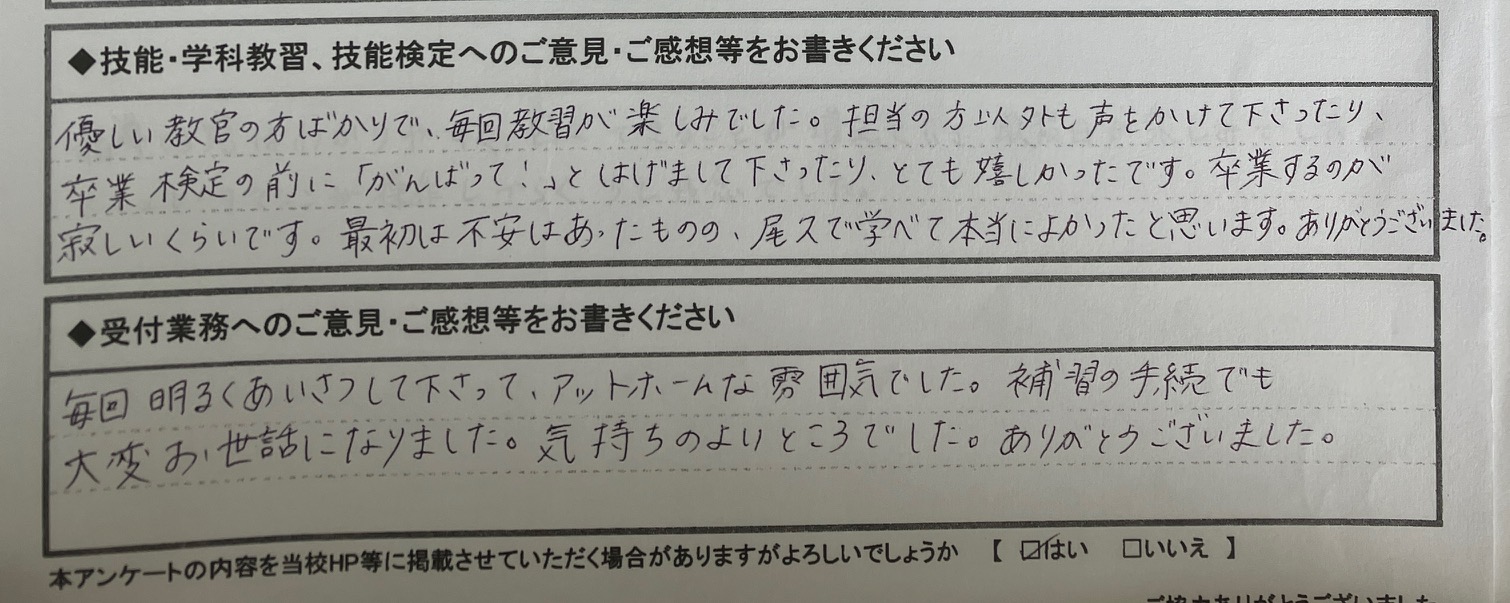 ◆技能・学科教習、技能検定へのご意見・ご感想等をお書きください
優しい教官の方ばかりで、毎回教習が楽しみでした。担当の方以外も声をかけて下さったり、
卒業検定の前に「がんばって!」とはげまして下さったり、とても嬉しかったです。卒業するのが
寂しいくらいです。最初は不安はあったものの、尾久で学べて本当によかったと思います。ありがとうございました。
◆受付業務へのご意見・ご感想等をお書きください
毎回明るくあいさつして下さって、アットホームな雰囲気でした。補習の手続でも
大変お世話になりました。気持ちのよいところでした。ありがとうございました。
本アンケートの内容を当校HP等に掲載させていただく場合がありますがよろしいでしょうか 【 ☑はい □いいえ 】
ご協力ありがとうございました